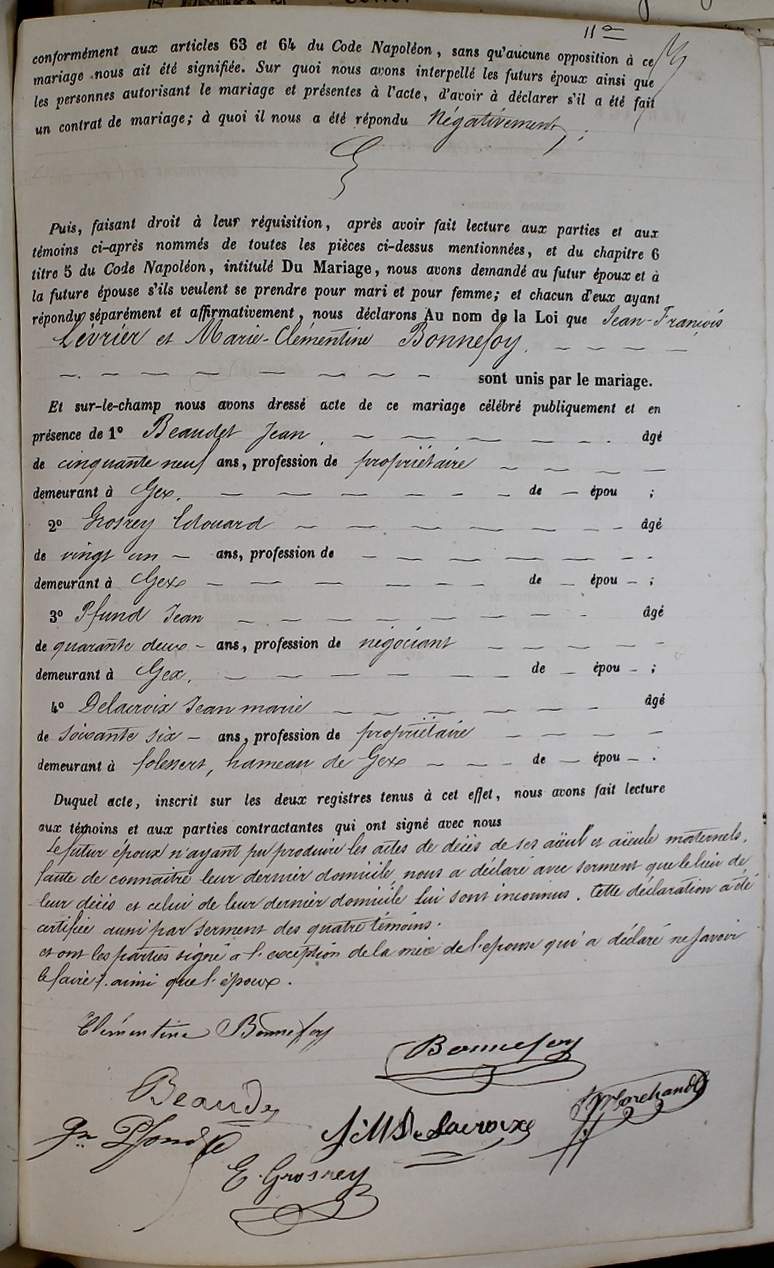 11
conformément aux articles 63 et 64 du Code Napoléon, sans qu'aucune opposition à ce
mariage nous ait été signifiée. Sur quoi nous avons interpellé les futurs époux ainsi que
les personnes autorisant le mariage et présentes à l'acte, d'avoir à déclarer s'il a été fait
un contrat de mariage; à quoi il nous a été répondu Négativement;
Puis, faisant droit à leur réquisition, après avoir fait lecture aux parties et aux
témoins ci-après nommés de toutes les pièces ci-dessus mentionnées, et du chapitre 6
titre 5 du Code Napoléon, intitulé Du Mariage, nous avons demandé au futur époux et à
la future épouse s'ils veulent se prendre pour mari et pour femme; et chacun d'eux ayant
répondu séparément et affirmativement, nous déclarons Au nom de la Loi que Jean-François
Lévrier et Marie-Clémentine Bonnefoy.
sont unis par le mariage.
Et sur-le-champ nous avons dressé acte de ce mariage célébré publiquement et en
présence de 1º Beaudet Jean. âgé
de cinquante neuf ans, profession de propriétaire
demeurant à Gex. de — épou ;
2º Grosrey Edouard âgé
de vingt un — ans, profession de
demeurant à Gex de — épou — ;
3º Pfund Jean âgé
de quarante deux — ans, profession de négociant
demeurant à Gex. de — épou — ;
4º Delacroix Jean marie âgé
de soixante six — ans, profession de propriétaire
demeurant à , hameau de Gex de — épou — .
Duquel acte, inscrit sur les deux registres tenus à cet effet, nous avons fait lecture
aux témoins et aux parties contractantes qui ont signé avec nous
Le futur époux n'ayant pu produire les actes de décès de ses aïeul et aïeule maternels,
faute de connaître leur dernier domicile, nous a déclaré avec serment que le lieu de
leur décès et celui de leur dernier domicile lui sont inconnus. Cette déclaration a été
certifiée aussi par serment des quatre témoins.
et ont les parties signé a l'exception de la mère de l'épouse qui a déclaré ne savoir
le faire ainsi que l'époux.
Clémentine Bonnefoy
Bonnefoy
Beaudet
J. M. Delacroix
E. Grosrey